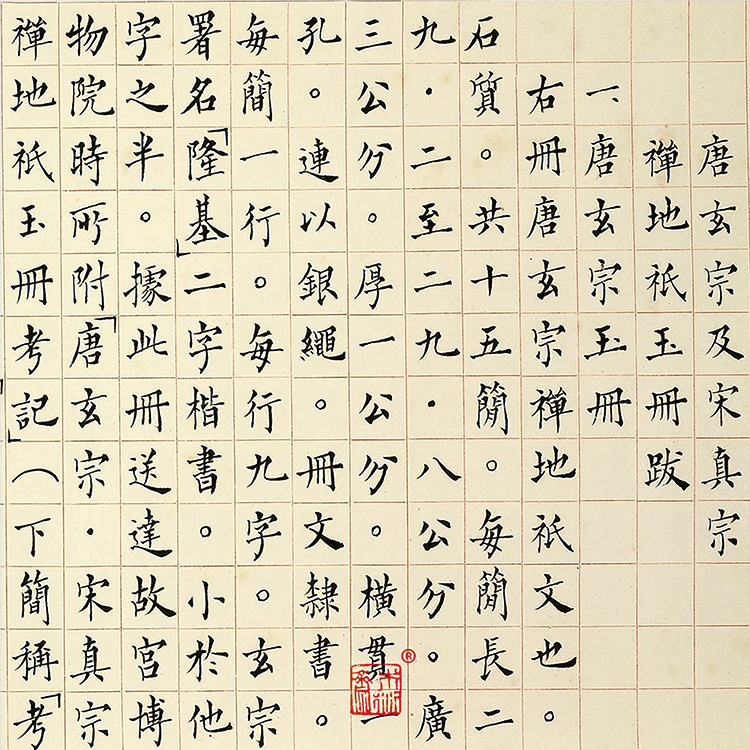 唐玄宗及宋真宗
禪地祇玉冊跋
一、唐玄宗玉冊
右冊唐玄宗禪地祇文也。
石質。共十五簡。每簡長二
九・二至二九・八公分。廣
三公分。厚一公分。橫貫一
孔。連以銀繩。冊文隸書。
每簡一行。每行九字。玄宗
署名「隆基」二字楷書。小於他
字之半。據此冊送達故宮博
物院時所附「唐玄宗・宋真宗
禪地祇玉冊考記」（下簡稱「考
®